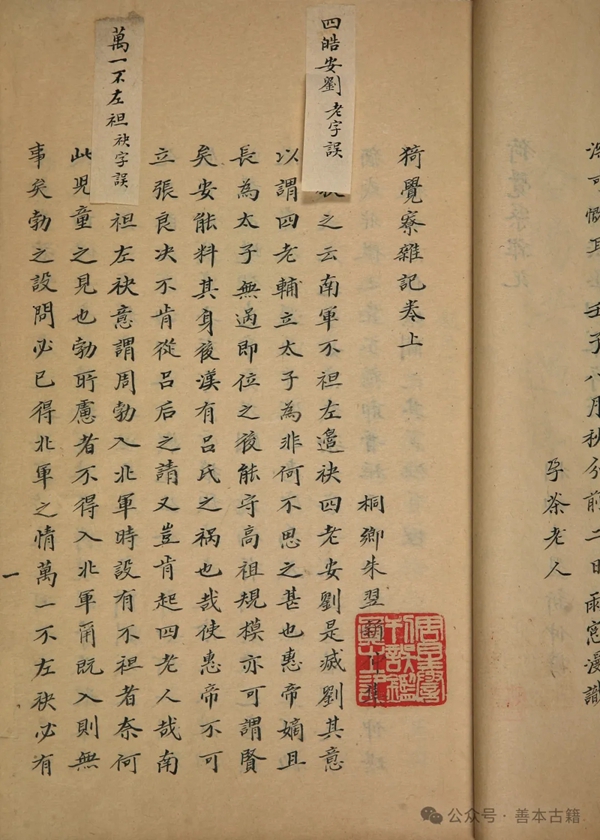 可慨耳壬子八月秋分前二日雨窓漫識
老人
猗覺寮雜記卷上
桐鄉朱翌
四皓安劉 老字誤
之云南軍不袒左邉袂四老安劉是滅劉其意
以謂四老輔立太子為非何不思之甚也惠帝嫡且
長為太子無過即位之後能守高祖規模亦可謂賢
矣安能料其身後漢有呂氏之禍也哉使惠帝不可
立張良决不肯從呂后之請又豈肯起四老人哉南
萬一不左袒 袂字誤
袒左袂意謂周勃入北軍時設有不袒者奈何
此兒童之見也勃所慮者不得入北軍爾既入則無
事矣勃之設問必已得北軍之情萬一不左袂必有
一
公众号 · 善本古籍